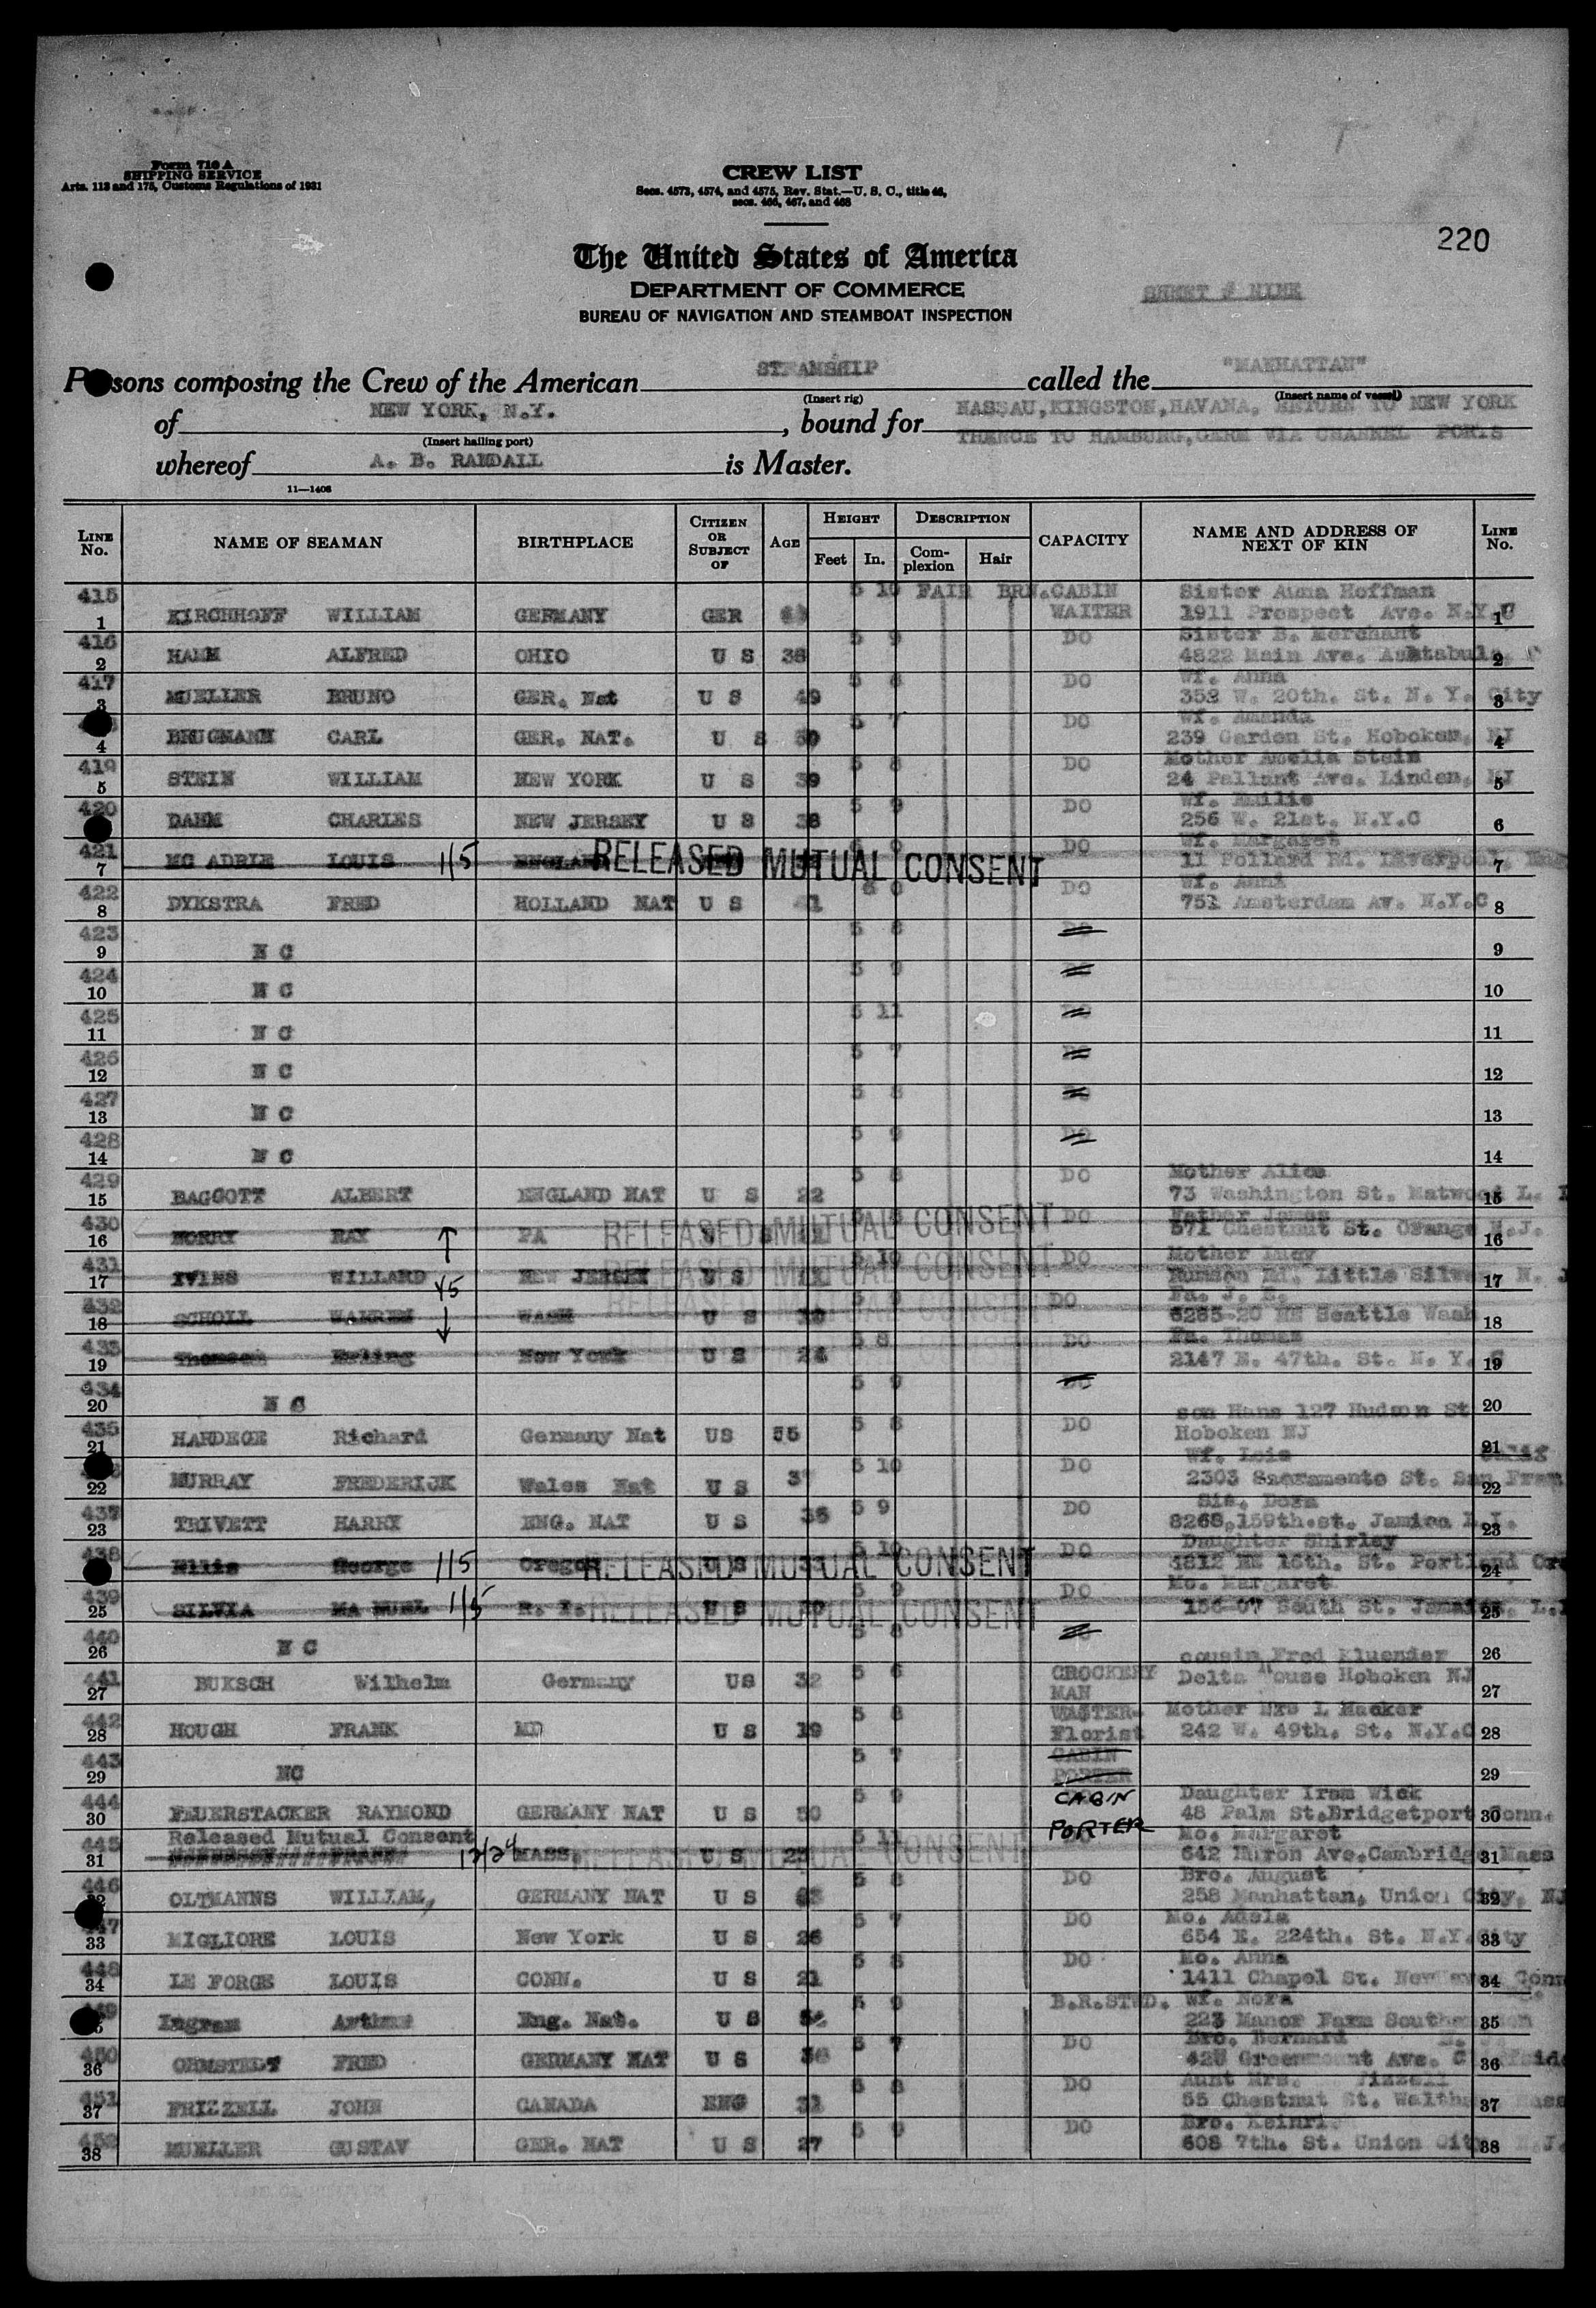 Form 710 A
SHIPPING SERVICE
Arts. 113 and 175, Customs Regulations of 1931
CREW LIST
Secs. 4573, 4574, and 4575, Rev. Stat.—U. S. C., title 46,
secs. 466, 467, and 468
220
The United States of America
DEPARTMENT OF COMMERCE
BUREAU OF NAVIGATION AND STEAMBOAT INSPECTION
SHEET # NINE
Persons composing the Crew of the American STEAMSHIP called the "MANHATTAN"
(Insert rig) (Insert name of vessel)
of NEW YORK, N.Y. , bound for NASSAU, KINGSTON, HAVANA, RETURN TO NEW YORK
(Insert hailing port) THENCE TO HAMBURG, GERM VIA CHANNEL PORTS
whereof A. B. RANDALL is Master.
11—1408
LINE No. NAME OF SEAMAN BIRTHPLACE CITIZEN OR SUBJECT OF AGE HEIGHT Feet In. DESCRIPTION Complexion Hair CAPACITY NAME AND ADDRESS OF NEXT OF KIN LINE No.
415 5 10 FAIR BRN. CABIN Sister Anna Hoffman
1 KIRCHHOFF WILLIAM GERMANY GER WAITER 1911 Prospect Ave. N.Y.C 1
416 5 9 DO Sister B. Merchant
2 HAMM ALFRED OHIO U S 38 4822 Main Ave. Ashtabula 2
417 5 8 DO Wf. Anna
3 MUELLER BRUNO GER. Nat U S 49 352 W. 20th. St. N. Y. City 3
5 7 DO Wf. Amanda
4 BRUGMANN CARL GER. NAT. U S 39 239 Garden St. Hoboken, NJ 4
419 5 8 DO Mother Amelia Stein
5 STEIN WILLIAM NEW YORK U S 39 24 Pallant Ave. Linden, NJ 5
420 5 9 DO Wf. Emilie
DAHM CHARLES NEW JERSEY U S 38 256 W. 21st. N.Y.C 6
421 DO Wf. Margaret
7 MC ADRLE LOUIS 1/5 ENGLAND RELEASED MUTUAL CONSENT 11 Pollard Rd. Liverpool, Eng 7
422 DO Wf. Anna
8 DYKSTRA FRED HOLLAND NAT U S 41 751 Amsterdam Av. N.Y.C 8
423 5 8
9 N C 9
424 5 9
10 N C 10
425 5 11
11 N C 11
426 5 7
12 N C 12
427 5 8
13 N C 13
428 5 9
14 N C 14
429 5 8 DO Mother Alice
15 BAGGOTT ALBERT ENGLAND NAT U S 22 73 Washington St. Matwood L. I 15
430 DO Father James
16 RAY PA RELEASED MUTUAL CONSENT 571 Chestnut St. Orange N.J. 16
431 5 10 DO Mother Lucy
17 IVINS WILLARD 1/5 NEW JERSEY U S RELEASED MUTUAL CONSENT Rumson Rd. Little Silver N. J 17
432 5 9 DO Fa. J. E.
18 SCHOLL WARREN WASH U S RELEASED MUTUAL CONSENT 6285-20 NE Seattle Wash 18
433 5 8 DO Fa. Thomas
19 Thomsen Erling New York U S 24 2147 E. 47th. St. N. Y. C 19
434 5 9
20 N C 20
435 5 8 DO son Hans 127 Hudson St
21 HARDEGE Richard Germany Nat US 55 Hoboken NJ 21
5 10 DO Wf. Lois
22 MURRAY FREDERICK Wales Nat U S 37 2303 Sacramento St. San Fran 22
437 5 9 DO Sis. Dora
23 TRIVETT HARRY ENG. NAT U S 35 8268, 159th. st. Jamica L.I. 23
438 5 10 DO Daughter Shirley
Ellis George 1/5 Oregon U S RELEASED MUTUAL CONSENT 4812 NE 16th. St. Portland Ore 24
439 5 9 DO Mo. Margaret
25 SILVIA MA NUEL 1/5 R. I. U S RELEASED MUTUAL CONSENT 156-07 South St. Jamaica, L.I 25
440 5 8
26 N C 26
441 5 6 CROCKERY cousin Fred Kluender
27 BUKSCH Wilhelm Germany US 32 MAN Delta House Hoboken NJ 27
442 5 8 WAITER- Mother Mrs L Hacker
28 HOUGH FRANK MD U S 39 Florist 242 W. 49th. St. N.Y.C 28
443 5 7 CABIN
29 NC PORTER 29
444 5 9 CABIN Daughter Irem Wick
30 FEUERSTACKER RAYMOND GERMANY NAT U S 50 PORTER 48 Palm St. Bridgeport Conn. 30
445 Released Mutual Consent 5 11 Mo. Margaret
31 12/24 MASS. U S 23 RELEASED MUTUAL CONSENT 642 Huron Ave. Cambridge Mass 31
446 5 8 DO Bro. August
OLTMANNS WILLIAM, GERMANY NAT U S 258 Manhattan, Union City, NJ 32
5 7 DO Mo. Adela
33 MIGLIORE LOUIS New York U S 26 654 E. 224th. St. N.Y. City 33
448 5 8 DO Mo. Anna
34 LE FORGE LOUIS CONN. U S 21 1411 Chapel St. New Haven Conn 34
5 9 B.R.STWD. Wf. Nora
Ingram Arthur Eng. Nat. U S 223 Manor Farm 35
450 5 7 DO Bro. Bernard
36 ORMSTEDT FRED GERMANY NAT U S 36 Greenmount Ave. 36
451 5 8 DO Aunt Mrs.
37 FRIZZELL JOHN CANADA ENG 55 Chestnut St. Waltham Mass 37
452 5 9 DO Bro. Heinri
38 MUELLER GUSTAV GER. NAT U S 27 608 7th. St. Union City N.J. 38